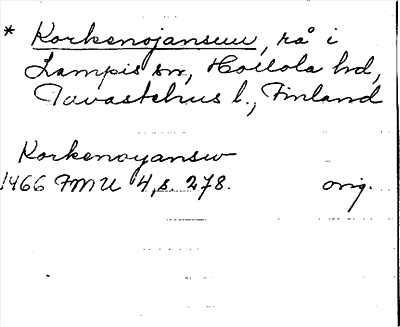 * Korkenojansuu, rå i
Lampis sn, Hollola hd,
Tavastehus l., Finland
Korkenoyansw
1466 FMU 4, s. 278. orig.